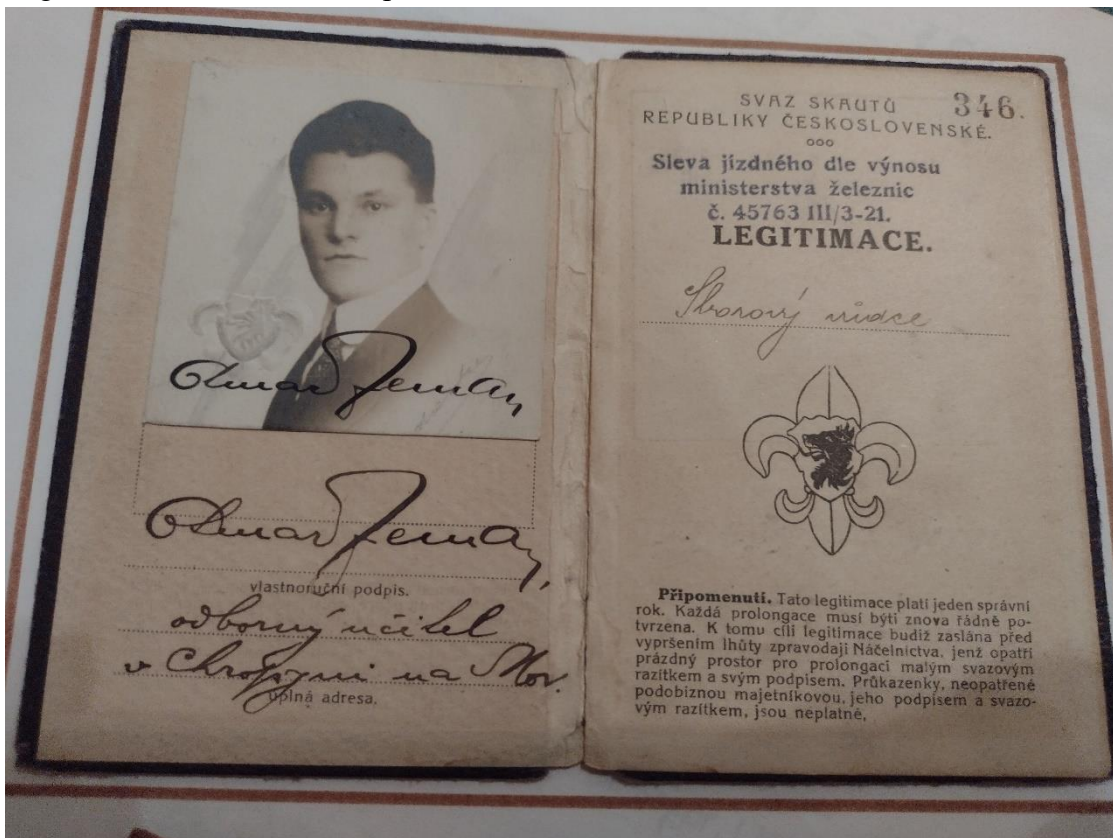 Otmar Zeman,
Otmar Zeman,
vlastnoruční podpis.
odborný učitel
v Chropyni na Mor.
úplná adresa.
SVAZ SKAUTŮ
346.
REPUBLIKY ČESKOSLOVENSKÉ.
ooo
Sleva jízdného dle výnosu
ministerstva železnic
č. 45763 III/3-21.
LEGITIMACE.
Sborový vůdce
Připomenutí. Tato legitimace platí jeden správní
rok. Každá prolongace musí býti znova řádně po-
tvrzena. K tomu cíli legitimace budiž zaslána před
vypršením lhůty zpravodaji Náčelnictva, jenž opatří
prázdný prostor pro prolongaci malým svazovým
razítkem a svým podpisem. Průkazenky, neopatřené
podobiznou majetníkovou, jeho podpisem a svazo-
vým razítkem, jsou neplatné.